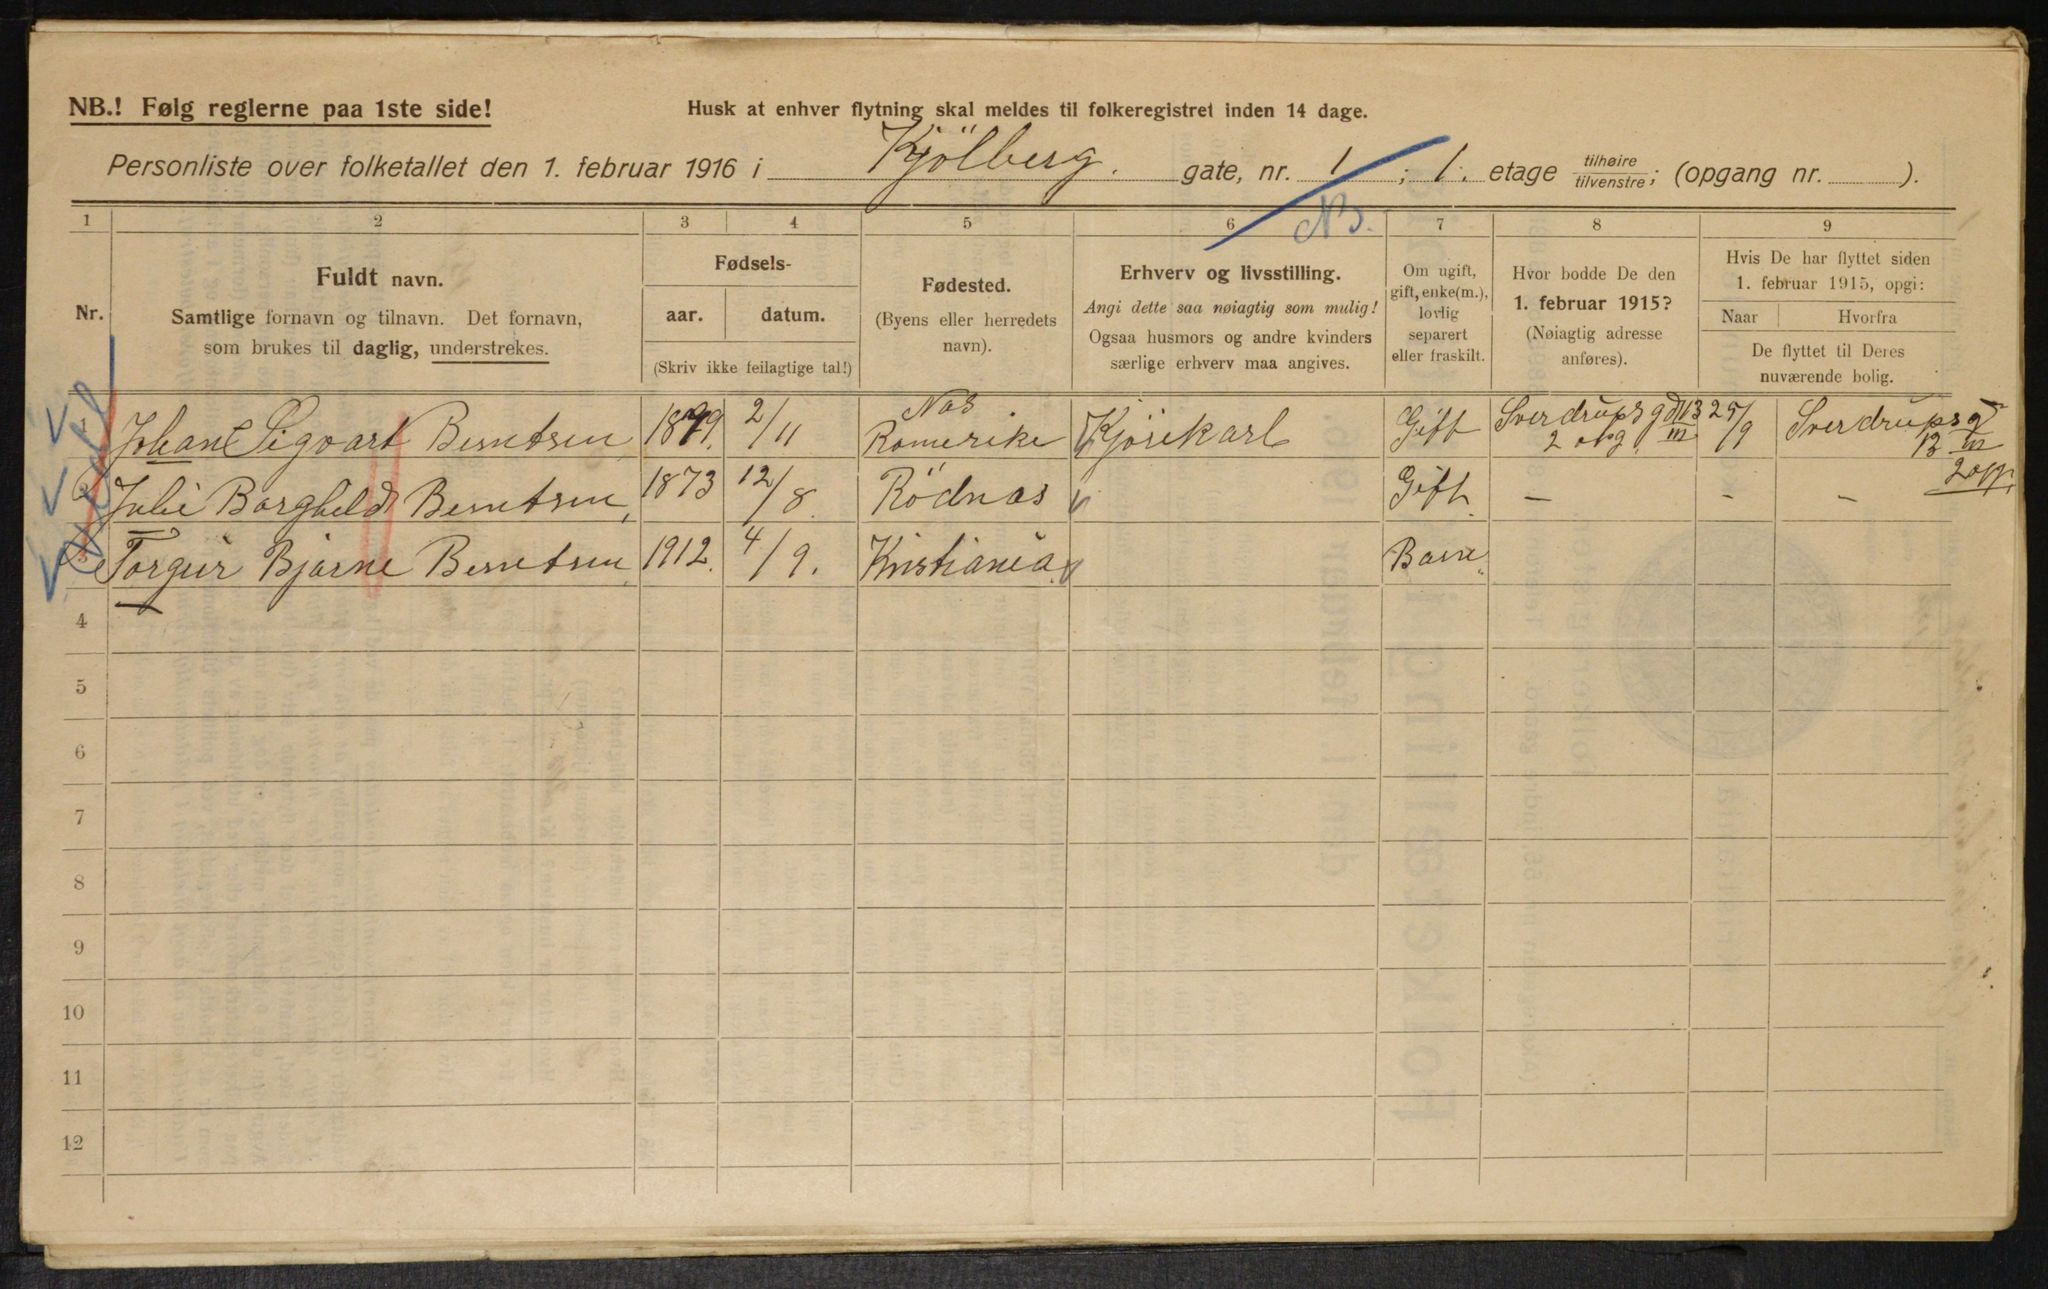 NB.! Følg reglerne paa 1ste side!
Husk at enhver flytning skal meldes til folkeregistret inden 14 dage.
Personliste over folketallet den 1. februar 1916 i Kjölberg. gate, nr. 1; 1. etage tilhøire/tilvenstre; (opgang nr. ).
NB.
1 2 3 4 5 6 7 8 9
Nr.
Fuldt navn.
Samtlige fornavn og tilnavn. Det fornavn,
som brukes til daglig, understrekes.
Fødsels-
aar. datum.
(Skriv ikke feilagtige tal!)
Fødested.
(Byens eller herredets
navn).
Erhverv og livsstilling.
Angi dette saa nøiagtig som mulig!
Ogsaa husmors og andre kvinders
særlige erhverv maa angives.
Om ugift,
gift, enke(m.),
lovlig
separert
eller fraskilt.
Hvor bodde De den
1. februar 1915?
(Nøiagtig adresse
anføres).
Hvis De har flyttet siden
1. februar 1915, opgi:
Naar Hvorfra
De flyttet til Deres
nuværende bolig.
1 Johan Sigvart Berntsen 1879. 2/11 Nas Romerike Kjörekarl Gift Sverdrupsgd 13 III 2 opg. 25/9 Sverdrupsg 13 III 2 opp.
2 Julie Borghild Berntsen, 1873 12/8. Rödnas Gift. — - -
3 Torgeir Bjarne Berntsen. 1912. 4/9. Kristiania. Barn
4
5
6
7
8
9
10
11
12